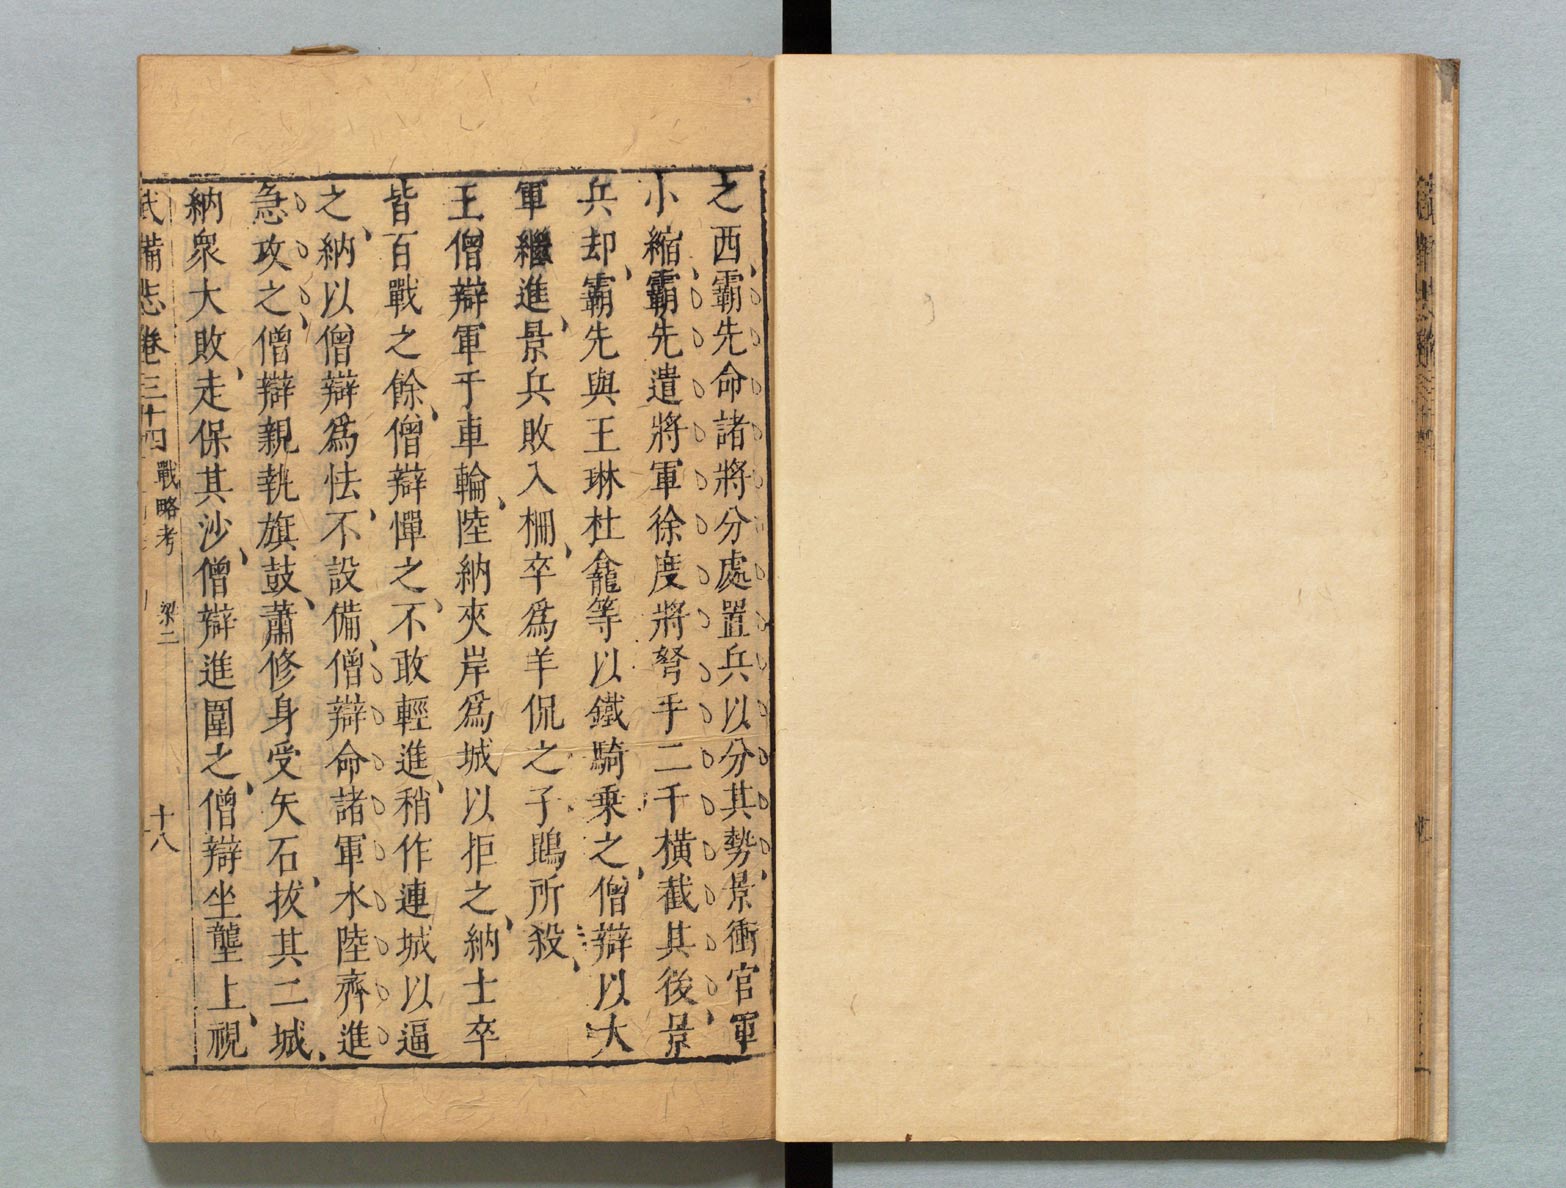 之西霸先命諸將分處置兵以分其勢景衝官軍
小縮霸先遣將軍徐度將弩手二千橫截其後景
兵却霸先與王琳杜龕等以鐵騎乗之僧辯以大
軍繼進景兵敗入柵卒爲羊侃之子鵾所殺
王僧辯軍于車輪陸納夾岸爲城以拒之納士卒
皆百戰之餘僧辯憚之不敢輕進稍作連城以逼
之納以僧辯爲怯不設備僧辯命諸軍水陸齊進
急攻之僧辯親執旗鼓蕭修身受矢石拔其二城
納衆大敗走保其沙僧辯進圍之僧辯坐壟上視
武備志卷三十四 戰略考 梁二 十八